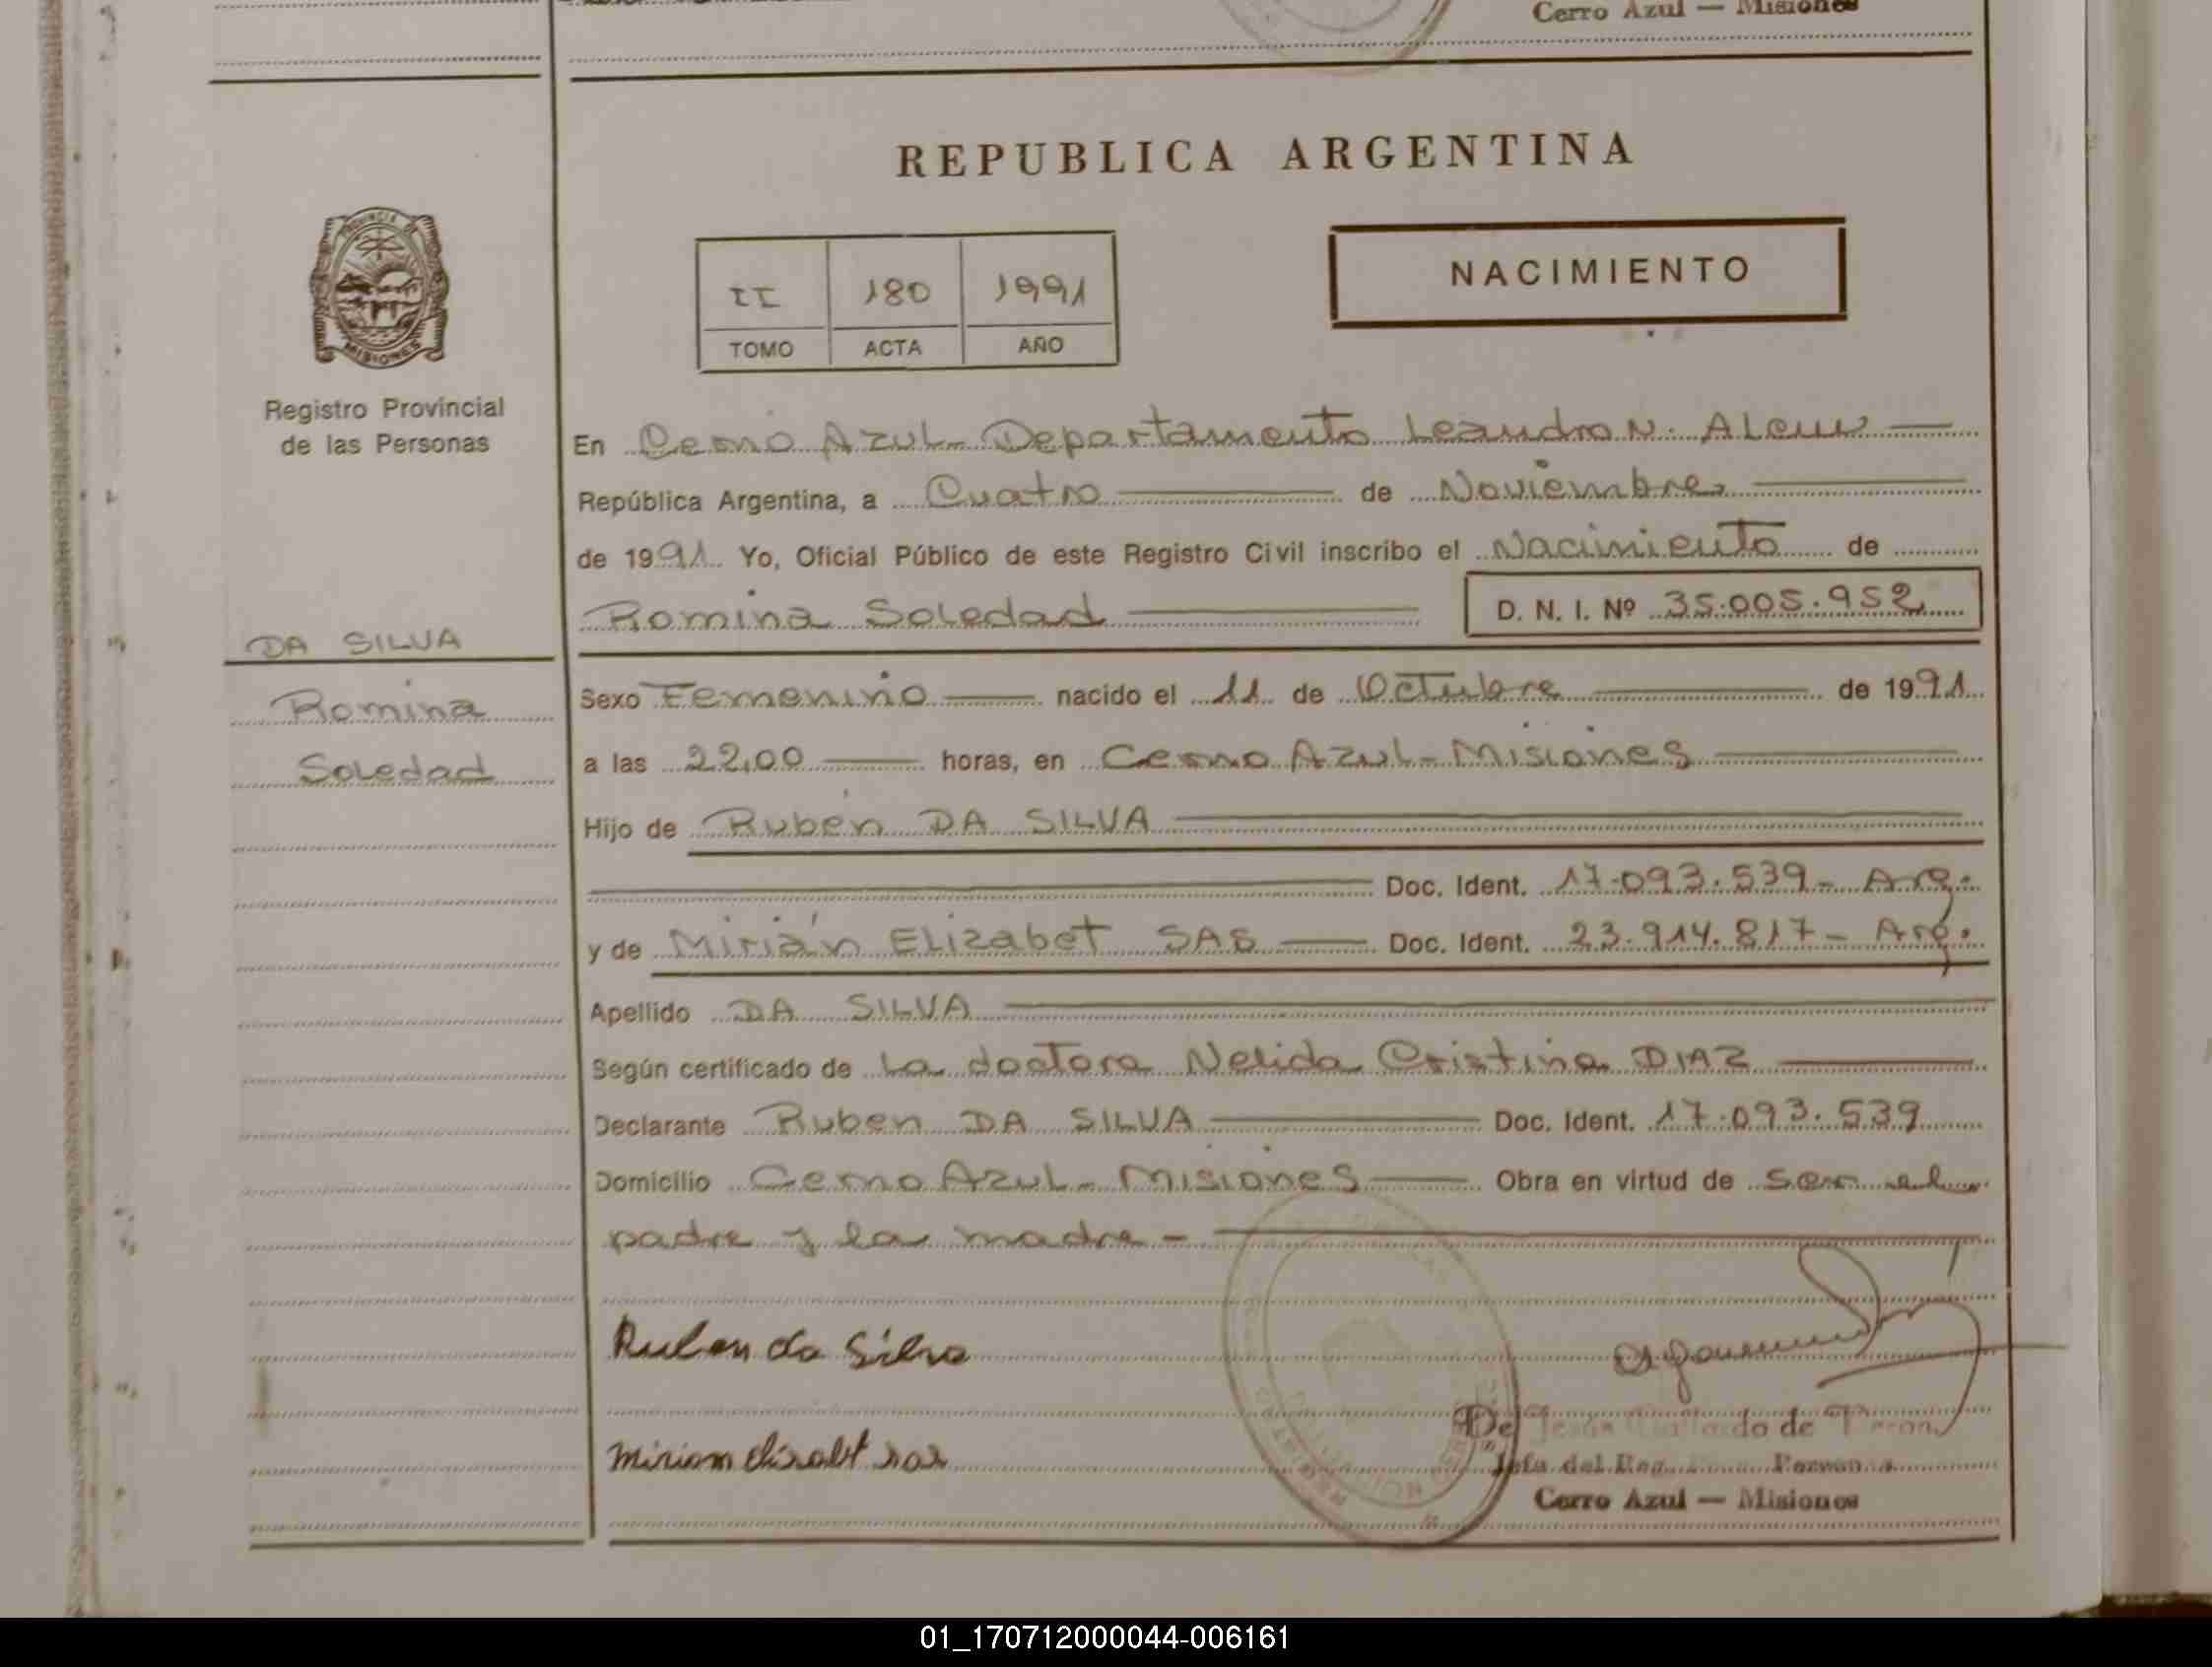 Cerro Azul — Misiones
REPUBLICA ARGENTINA
PROVINCIA DE
MISIONES
Registro Provincial
de las Personas
II 180 1991
TOMO ACTA AÑO
NACIMIENTO
En Cerro Azul - Departamento Leandro N. Alem —
República Argentina, a Cuatro — de Noviembre —
de 1991 Yo, Oficial Público de este Registro Civil inscribo el Nacimiento de
Romina Soledad — D. N. I. Nº 35.005.952
DA SILVA
Romina
Soledad
Sexo Femenino — nacido el 11 de Octubre — de 1991
a las 22,00 — horas, en Cerro Azul - Misiones —
Hijo de Ruben DA SILVA —
— Doc. Ident. 17.093.539 - Arg.
y de Mirián Elizabet SAS — Doc. Ident. 23.914.817 - Arg.
Apellido DA SILVA —
Según certificado de La doctora Nelida Cristina DIAZ —
Declarante Ruben DA SILVA — Doc. Ident. 17.093.539
Domicilio Cerro Azul - Misiones — Obra en virtud de ser el
padre y la madre - —
Ruben da Silva
Miriam Elisabt sas
Del Jesús Gallardo de
Jefa del Reg. Personas
Cerro Azul — Misiones
01_170712000044-006161